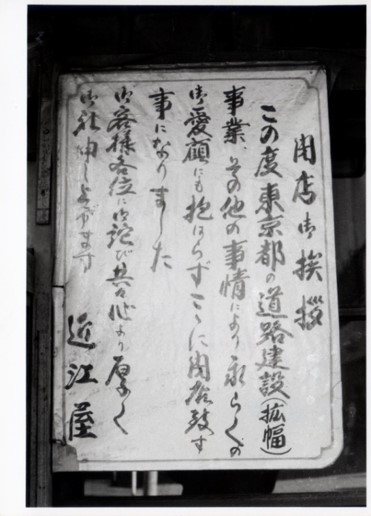 閉店御挨拶
この度東京都の道路建設(拡幅)
事業、その他の事情により永らくの
御愛顧にも抱はらずここに閉店致す
事になりました
御客様各位に御詫び共々心より厚く
御礼申し上げます
近江屋